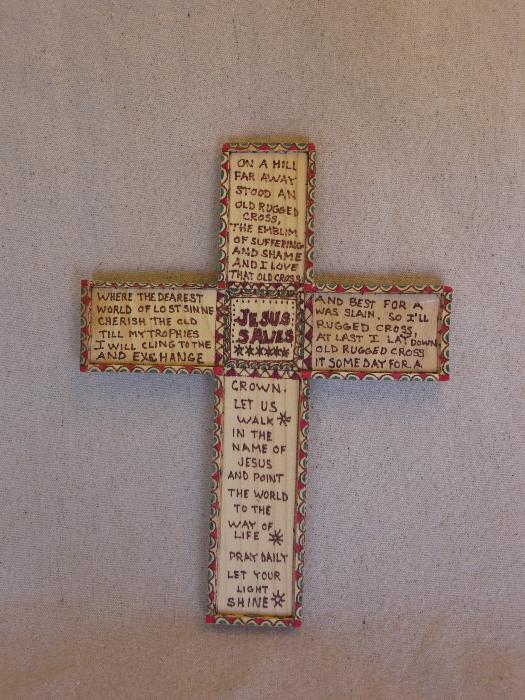 ON A HILL
FAR AWAY
STOOD AN
OLD RUGGED
CROSS,
THE EMBLIM
OF SUFFERING
AND SHAME
AND I LOVE
THAT OLD CROSS
WHERE THE DEAREST
WORLD OF LOST SINNE
CHERISH THE OLD
TILL MY TROPHIES
I WILL CLING TO THE
AND EXCHANGE
JESUS
SAVES
AND BEST FOR A
WAS SLAIN. SO I'LL
RUGGED CROSS,
AT LAST I LAY DOWN
OLD RUGGED CROSS
IT SOME DAY FOR A
CROWN.
LET US
WALK
IN THE
NAME OF
JESUS
AND POINT
THE WORLD
TO THE
WAY OF
LIFE
PRAY DAILY
LET YOUR
LIGHT
SHINE